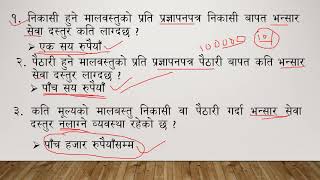 १. निकासी हुने मालवस्तुको प्रति प्रज्ञापनपत्र निकासी बापत भन्सार
सेवा दस्तुर कति लाग्दछ ?
➢ एक सय रुपैयाँ
100000
101
२. पैठारी हुने मालवस्तुको प्रति प्रज्ञापनपत्र पैठारी बापत कति भन्सार
सेवा दस्तुर लाग्दछ ?
➢ पाँच सय रुपैयाँ
३. कति मूल्यको मालवस्तु निकासी वा पैठारी गर्दा भन्सार सेवा
दस्तुर नलाग्ने व्यवस्था रहेको छ ?
➢ पाँच हजार रुपैयाँसम्म